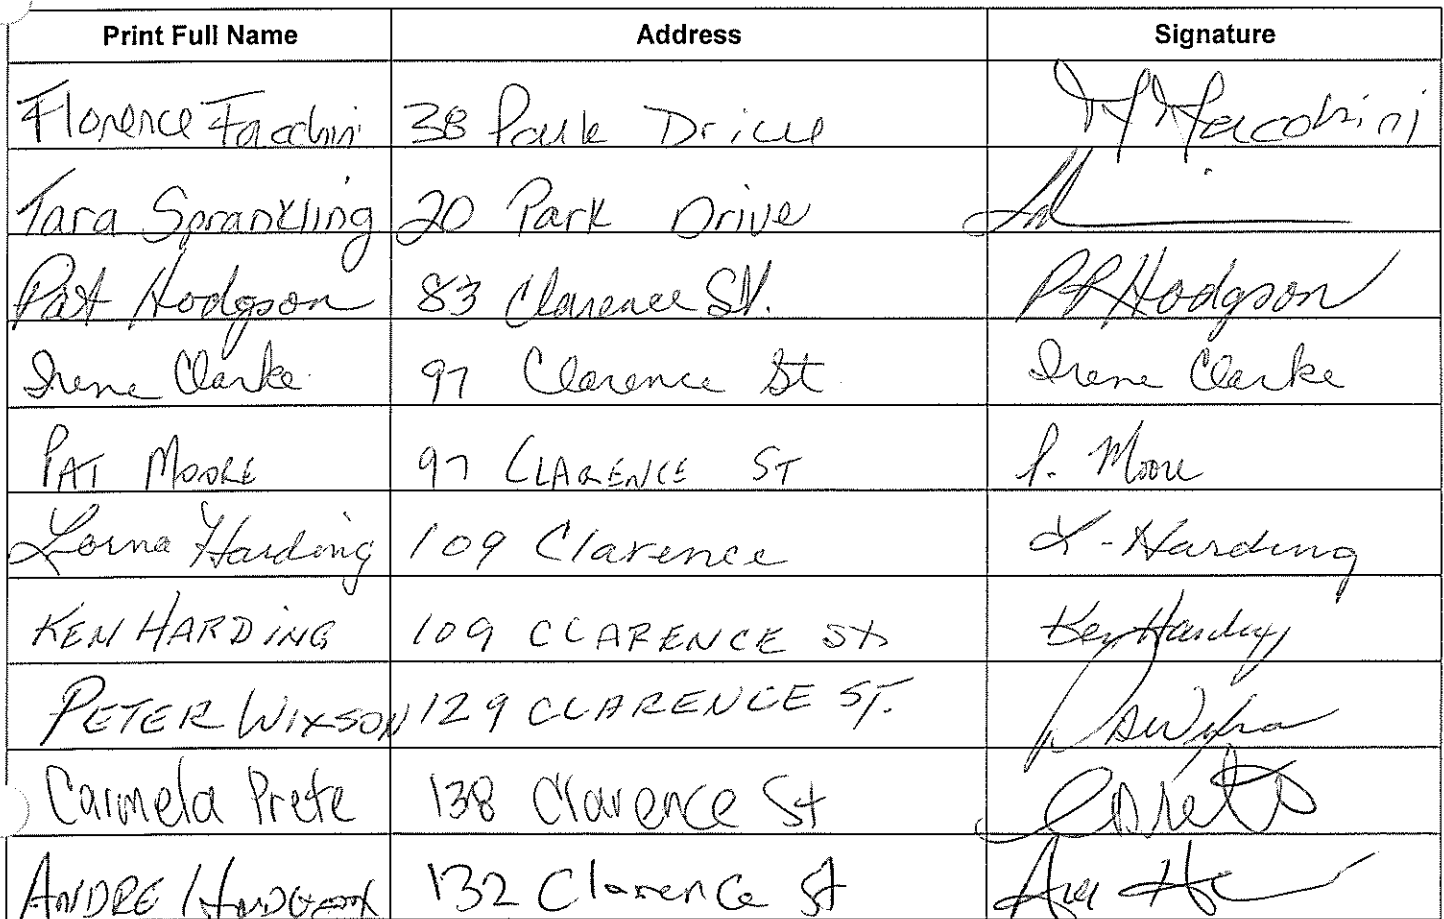 Print Full Name Address Signature
Florence Facchini 38 Park Drive
Tara Sprankling 20 Park Drive
Pat Hodgson 83 Clarence St. PR Hodgson
Irene Clarke 97 Clarence St Irene Clarke
PAT MOORE 97 CLARENCE ST P. Moore
Lorna Harding 109 Clarence L-Harding
KEN HARDING 109 CLARENCE St Ken Harding
PETER WIXSON 129 CLARENCE ST.
Carmela Prete 138 Clarence St CPrete
ANDRE 132 Clarence St